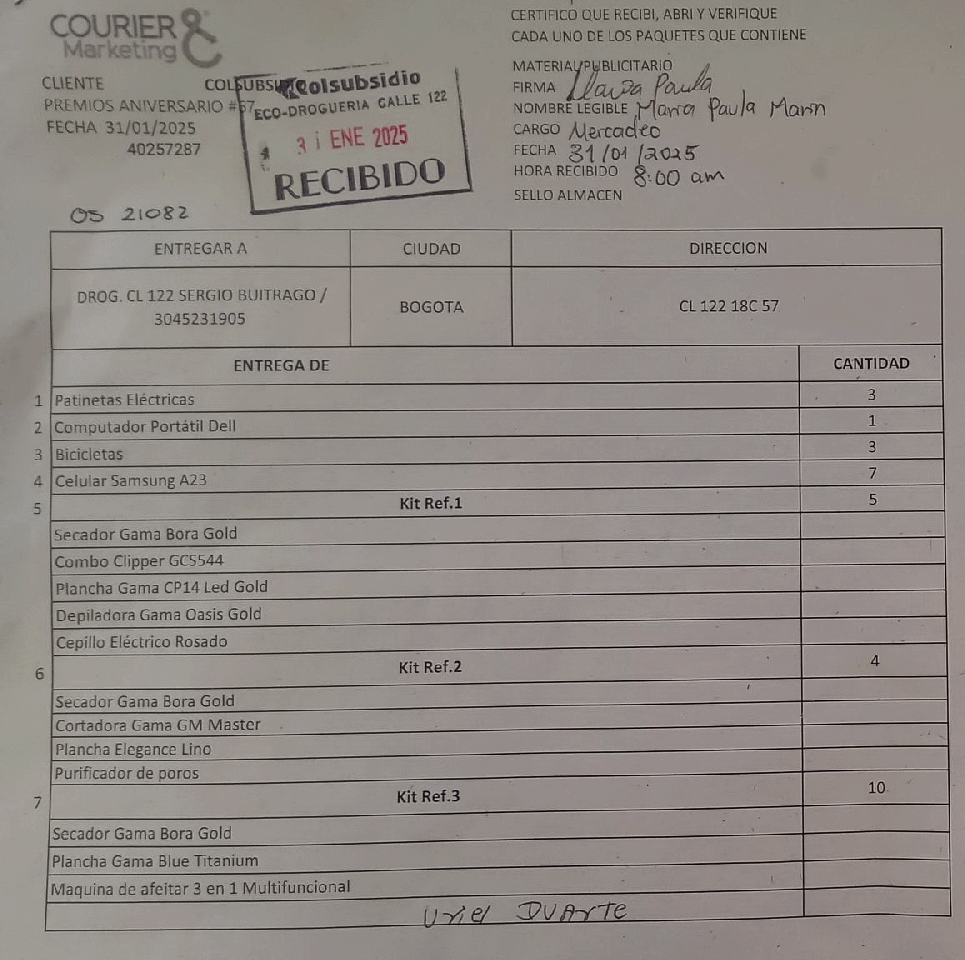 COURIER &
Marketing
CLIENTE COLSUBSI
PREMIOS ANIVERSARIO #57
FECHA 31/01/2025
40257287
OS 21082
Colsubsidio
ECO-DROGUERIA CALLE 122
31 ENE 2025
RECIBIDO
CERTIFICO QUE RECIBI, ABRI Y VERIFIQUE
CADA UNO DE LOS PAQUETES QUE CONTIENE
MATERIAL PUBLICITARIO
FIRMA Paula
NOMBRE LEGIBLE Maria Paula Marin
CARGO Mercadeo
FECHA 31/01/2025
HORA RECIBIDO 8:00 am
SELLO ALMACEN
ENTREGAR A CIUDAD DIRECCION
DROG. CL 122 SERGIO BUITRAGO /
3045231905 BOGOTA CL 122 18C 57
ENTREGA DE CANTIDAD
1 Patinetas Eléctricas 3
2 Computador Portátil Dell 1
3 Bicicletas 3
4 Celular Samsung A23 7
5 Kit Ref.1 5
Secador Gama Bora Gold
Combo Clipper GC5544
Plancha Gama CP14 Led Gold
Depiladora Gama Oasis Gold
Cepillo Eléctrico Rosado
6 Kit Ref.2 4
Secador Gama Bora Gold
Cortadora Gama GM Master
Plancha Elegance Lino
Purificador de poros
7 Kit Ref.3 10
Secador Gama Bora Gold
Plancha Gama Blue Titanium
Maquina de afeitar 3 en 1 Multifuncional
Uriel Duarte